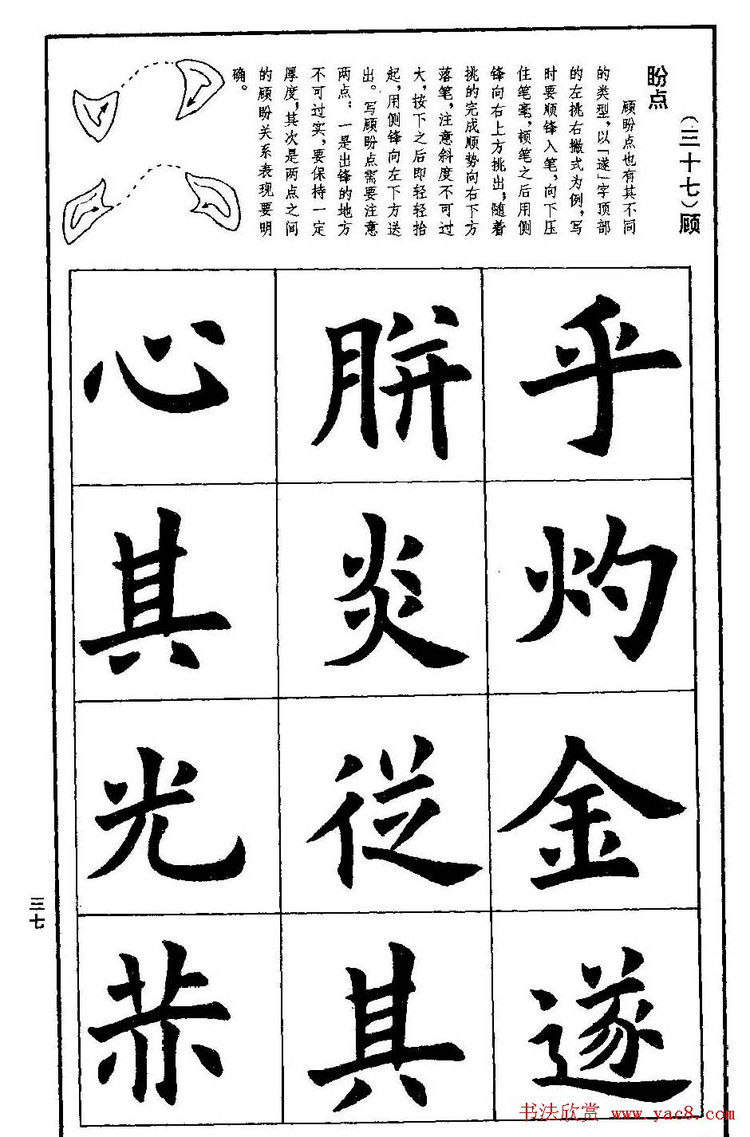 （三十七）顾
盼点
顾盼点也有其不同
的类型，以「遂」字顶部
的左挑右撇式为例，写
时要顺锋入笔，向下压
住笔毫，顿笔之后用侧
锋向右上方挑出，随着
挑的完成顺势向右下方
落笔，注意斜度不可过
大，按下之后即轻轻抬
起，用侧锋向左下方送
出。写顾盼点需要注意
两点：一是出锋的地方
不可过实，要保持一定
厚度，其次是两点之间
的顾盼关系表现要明
确。
乎
灼
金
遂
胼
炎
従
其
心
其
光
三七
书法欣赏 www.yac8.com